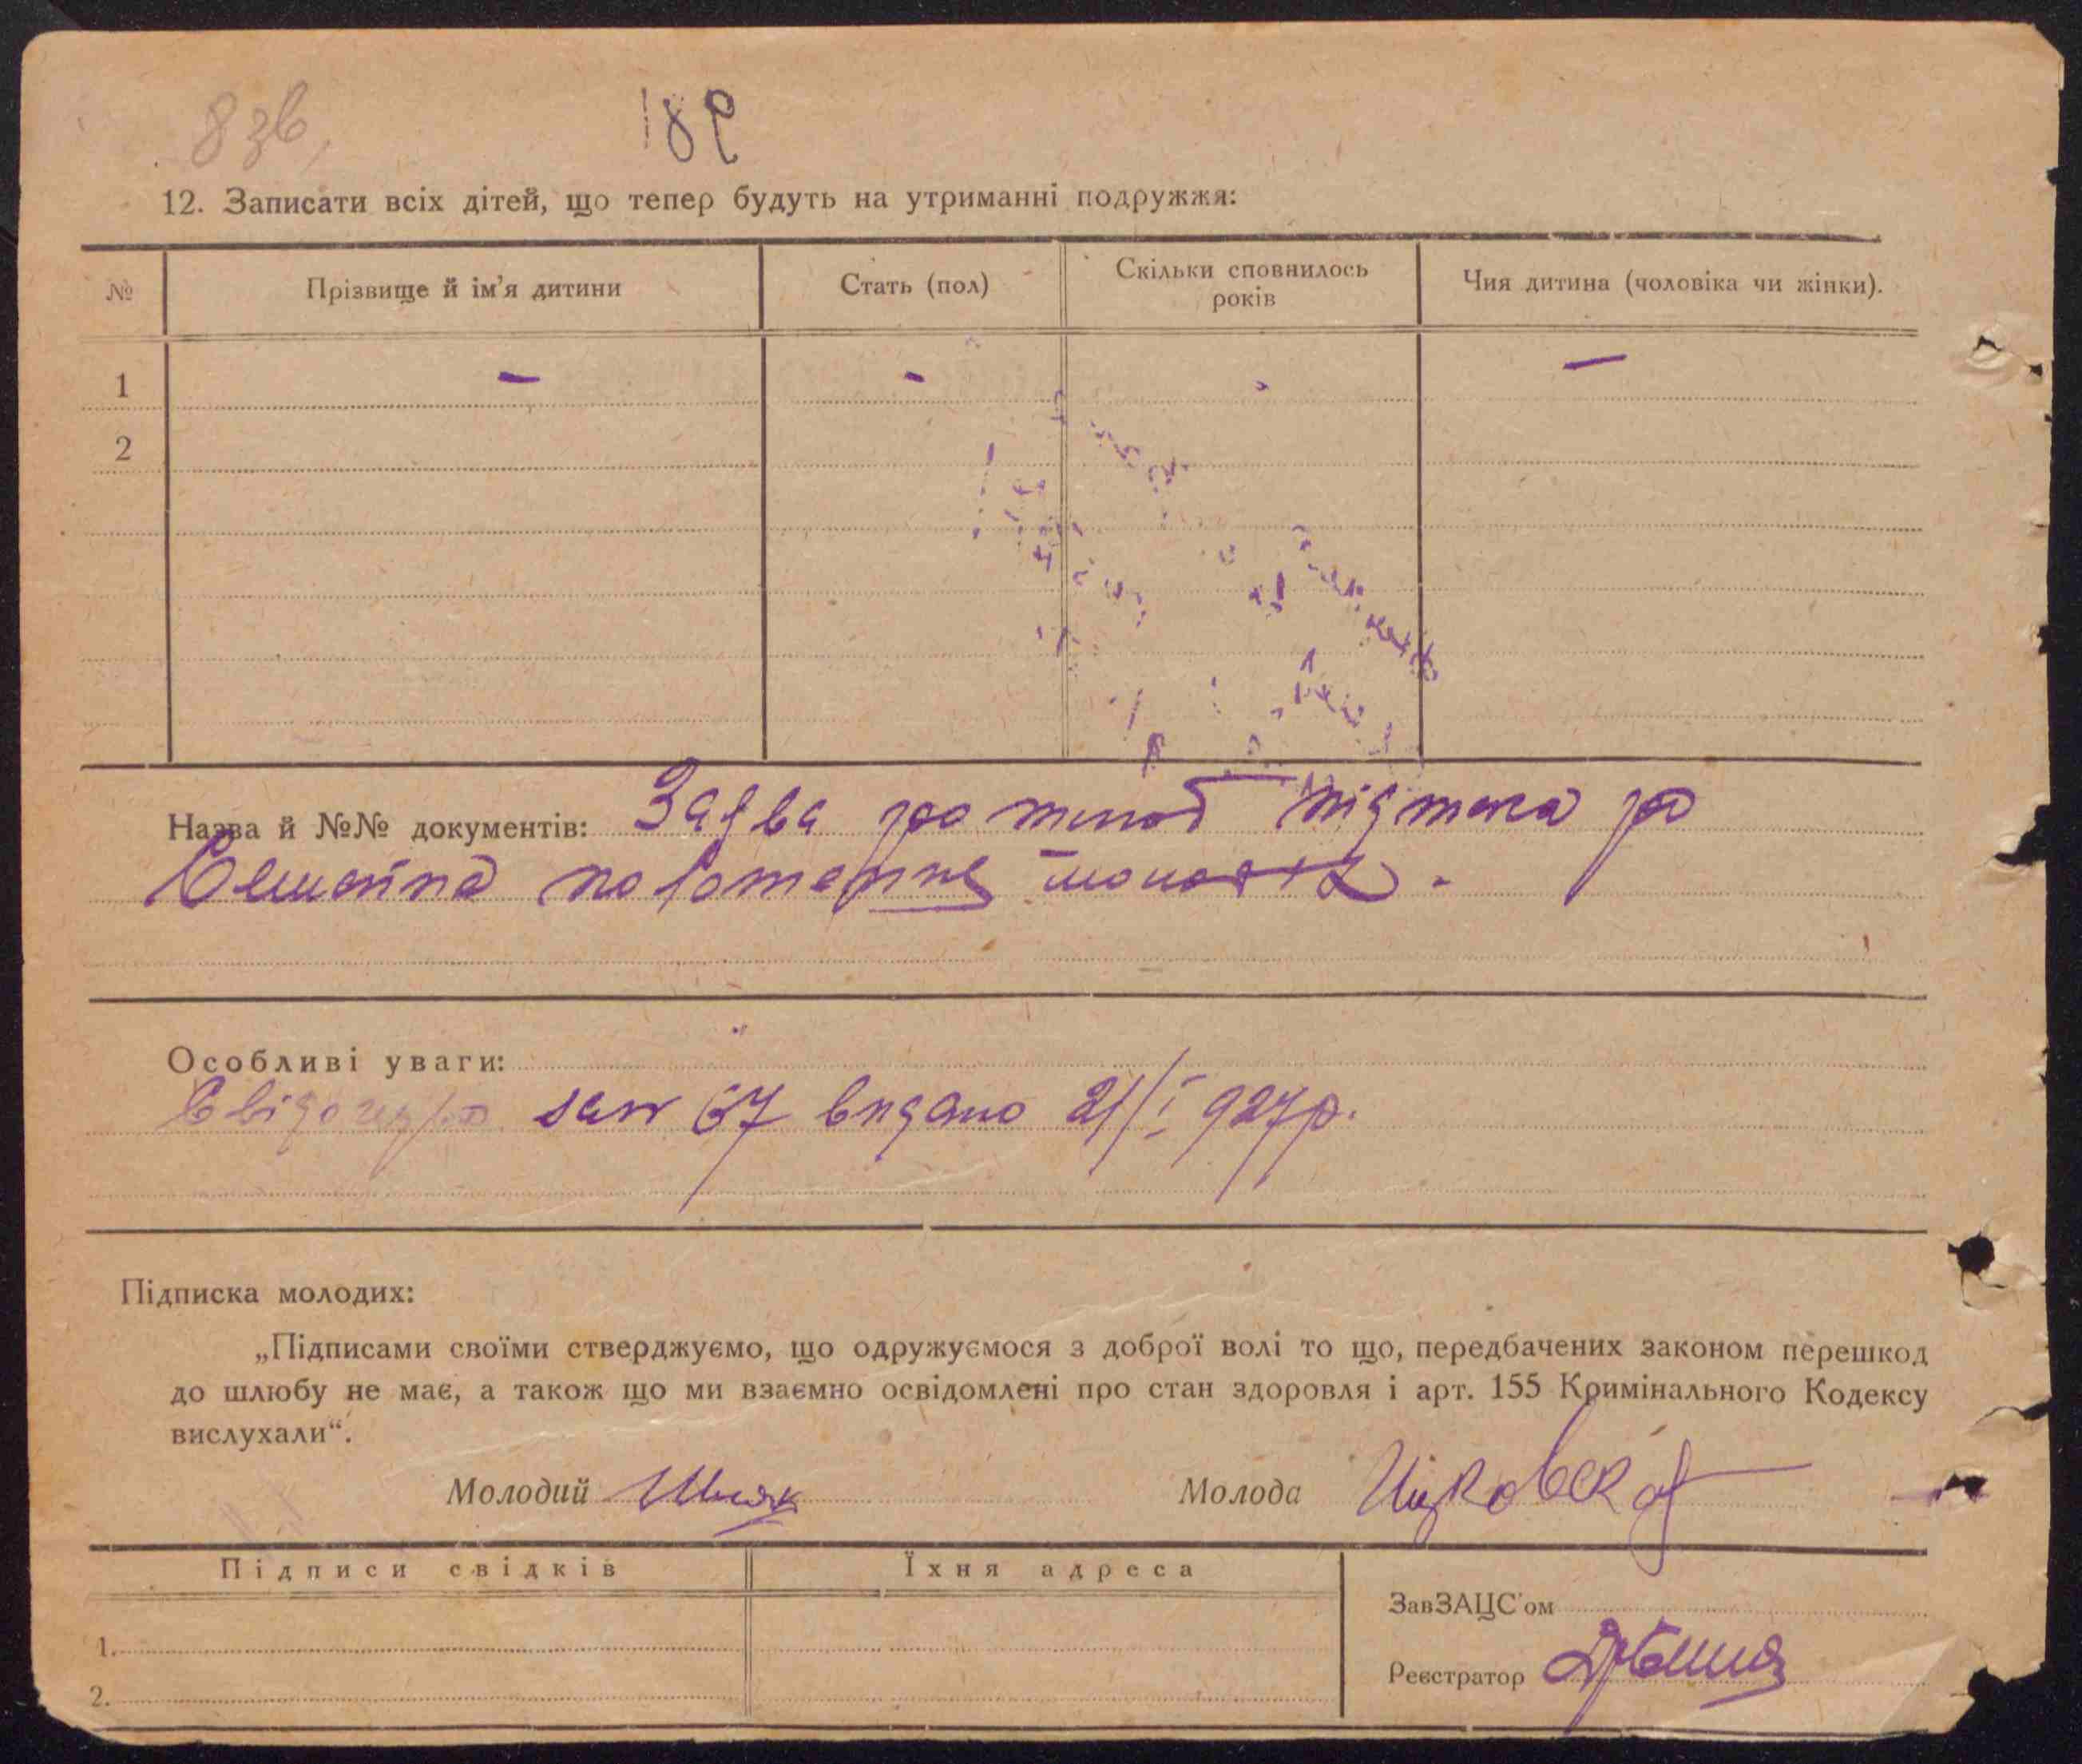 8 зв,
189
12. Записати всіх дітей, що тепер будуть на утриманні подружжя:
№ Прізвище й ім'я дитини Стать (пол) Скільки сповнилось років Чия дитина (чоловіка чи жінки).
1 - - - -
2
Назва й №№ документів: Заява про шлюб підписка про
Особливі уваги:
Свідоцтво зап 67 видано 21/I 927р.
Підписка молодих:
„Підписами своїми стверджуємо, що одружуємося з доброї волі то що, передбачених законом перешкод
до шлюбу не має, а також що ми взаємно освідомлені про стан здоровля і арт. 155 Кримінального Кодексу
вислухали“.
Молодий Молода
Підписи свідків Їхня адреса
ЗавЗАЦС'ом
1.
Реєстратор
2.